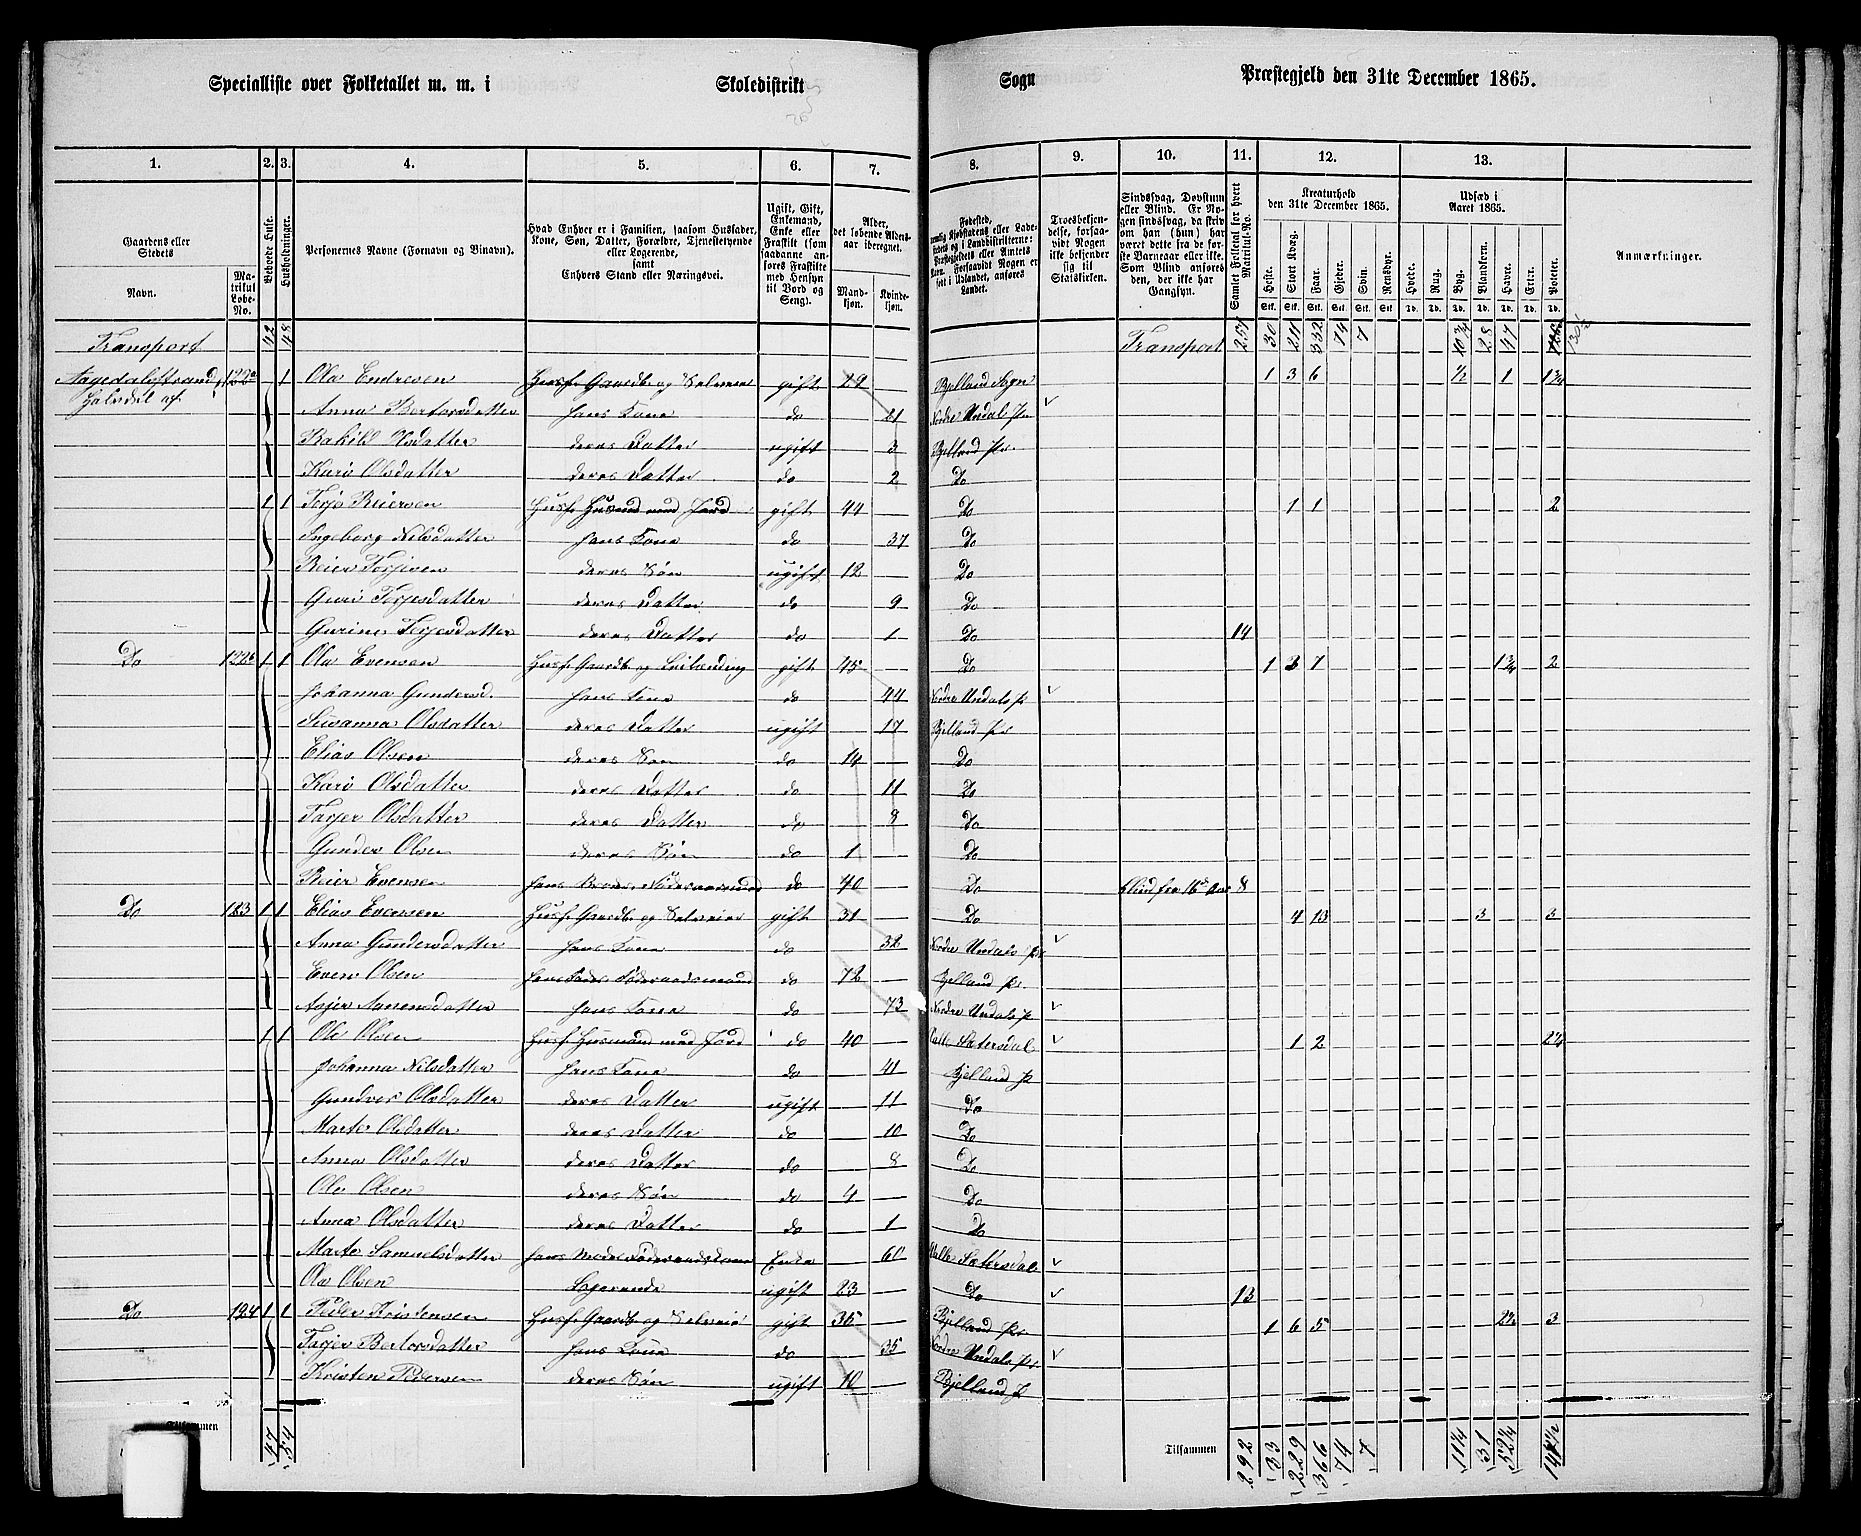 Specialliste over Folketallet m. m. i Skoledistrikt Sogn Præstegjeld den 31te December 1865.
1. 2. 3. 4. 5. 6. 7. 8. 9. 10. 11. 12. 13.
Gaardens eller Stedets Navn. Matrikul Løbe-No. Beboede Huse. Husholdninger. Personernes Navne (Fornavn og Tilnavn). Hvad Enhver er i Familien, saasom Husfader, Kone, Søn, Datter, Forældre, Tjenestetyende eller Logerende, samt Enhvers Stand eller Næringsvei. Ugift, Gift, Enkemand, Enke eller Fraskilt (som saadanne anføres Fraskilte med Hensyn til Bord og Seng). Alder, det løbende Aldersaar iberegnet. Mandkjøn. Kvindekjøn.
Troesbekjendelse, forsaavidt Nogen ikke bekjender sig til Statskirken. Sindssvag, Døvstum eller Blind. Er Nogen sindssvag, da skrives om han (hun) har været dette fra de første Barneaar eller ikke. Som Blind anføres den, der ikke har Gangsyn. Samlet Folketal for hvert Matrikul-No. Kreaturhold den 31te December 1865. Heste. Stort Kvæg. Faar. Gjeder. Svin. Rensdyr. Udsæd i Aaret 1865. Hvede. Rug. Byg. Blandkorn. Havre. Erter. Poteter. Anmærkninger.
Transport 42 48 Transport 257 30 211 332 74 7 10¾ 28 47
122a 1 Ola Endresen Husf. Gaardb. og Selveier gift 29 Bjelland Sogn 1 3 6 ½ 1 1¾
Halvdel af
Anna Bertorsdatter hans Kone do 21 Nordre Undal Pr
Rakild Olsdatter deres Datter ugift 3 Bjelland Pr.
Kari Olsdatter deres Datter do 2 Do
1 1 Terje Reiersen Husf. Husmand med Jord gift 44 Do 1 1 2
Ingeborg Nilsdatter hans Kone do 37 Do
Reier Terjesen deres Søn ugift 12 Do
Guri Terjesdatter deres Datter do 9 Do
Gurine Terjesdatter deres Datter do 1 Do 14
Do 122b 1 1 Ola Evensen Husf. Gaardb. og Leilænding gift 45 Do 1 3 7 1¾ 2
Johanna Gundersd. hans Kone do 44 Nordre Undals Pr
Susanna Olsdatter deres Datter ugift 17 Bjelland Pr
Elias Olsen deres Søn do 14 Do
Kari Olsdatter deres Datter do 11 Do
Tarjer Olsdatter deres Datter do 8 Do
Gunder Olsen deres Søn do 1 Do
Reier Evensen hans Broder, Føderaadsmand do 40 Do Blind fra 16de Aar 8
Do 123 1 1 Elias Evensen Husf. Gaardb. og Selveier gift 31 Do 4 13 3 3
Anna Gundersdatter hans Kone do 32 Nordre Undals Pr
Even Olsen hans Fader Føderaadsmand do 72 Bjelland Pr.
Asjer Aanensdatter hans Kone do 73 Nordre Undals Pr
1 1 Ole Olsen Husf. Husmand med Jord do 40 Valle Sætersdal 1 2 2¼
Johanna Nilsdatter hans Kone do 41 Bjelland Pr
Gundver Olsdatter deres Datter ugift 11 Do
Marte Olsdatter deres Datter do 10 Do
Anna Olsdatter deres Datter do 8 Do
Ole Olsen deres Søn do 4 Do
Anna Olsdatter deres Datter do 1 Do
Marte Samuelsdatter hans Moder Føderaadskone Enke 60 Valle Sætersdal
Ola Olsen Logerende ugift 23 Do 13
Do 124 1 1 Peder Kristensen Husf. Gaardb. og Selveier gift 35 Bjelland Pr. 1 6 5 2½ 3
Tarjer Bertorsdatter hans Kone do 35 Nordre Undals Pr
Kristen Pedersen deres Søn ugift 10 Bjelland P
Tilsammen 47 54 Tilsammen 292 33 229 366 74 7 11¼ 31 52¼